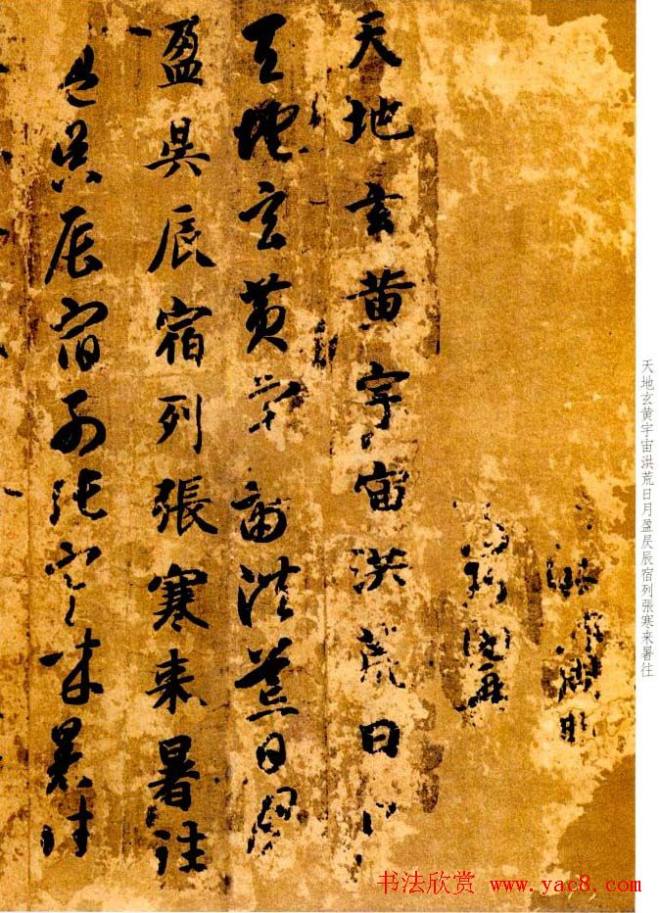 天地玄黄宇宙洪荒日月盈昃辰宿列张寒来暑往
天地玄黄宇宙洪荒日月
天地玄黄宇宙洪荒日月
盈昃辰宿列張寒来暑往
盈昃辰宿列張寒来暑往
书法欣赏 www.yac8.com